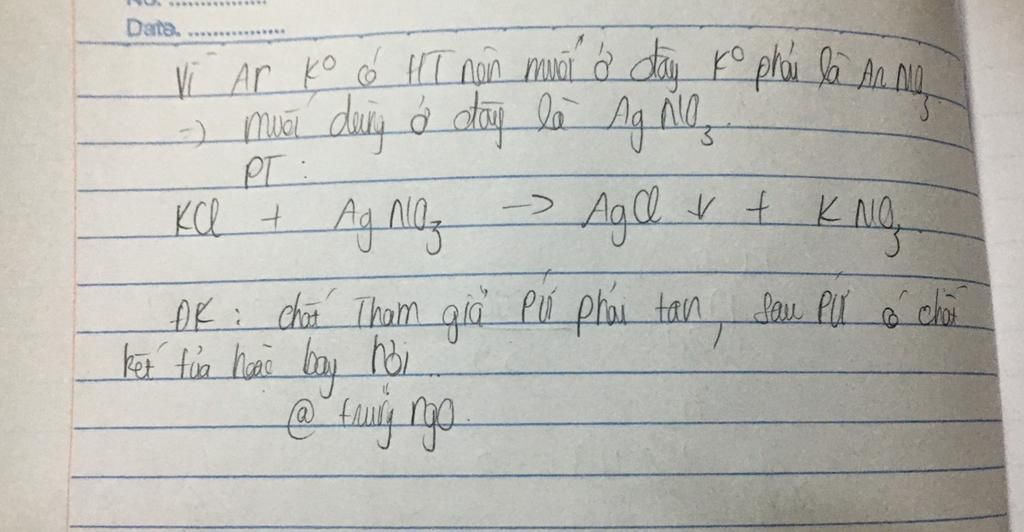 No. ................
Date. ................
Vì Ar K⁰ có HT nên muối ở đây K⁰ phải là ArNO₃
=> muối dùng ở đây là AgNO₃.
PT :
KCl + AgNO₃ -> AgCl ↓ + KNO₃
ĐK : chất Tham gia PỨ phải tan, sau PỨ có chất
kết tủa hoặc bay hơi..
@ trung ngo.